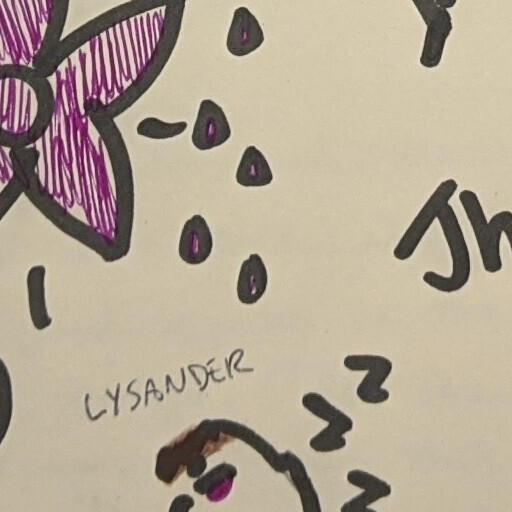 Jh
LYSANDER
z
z
z